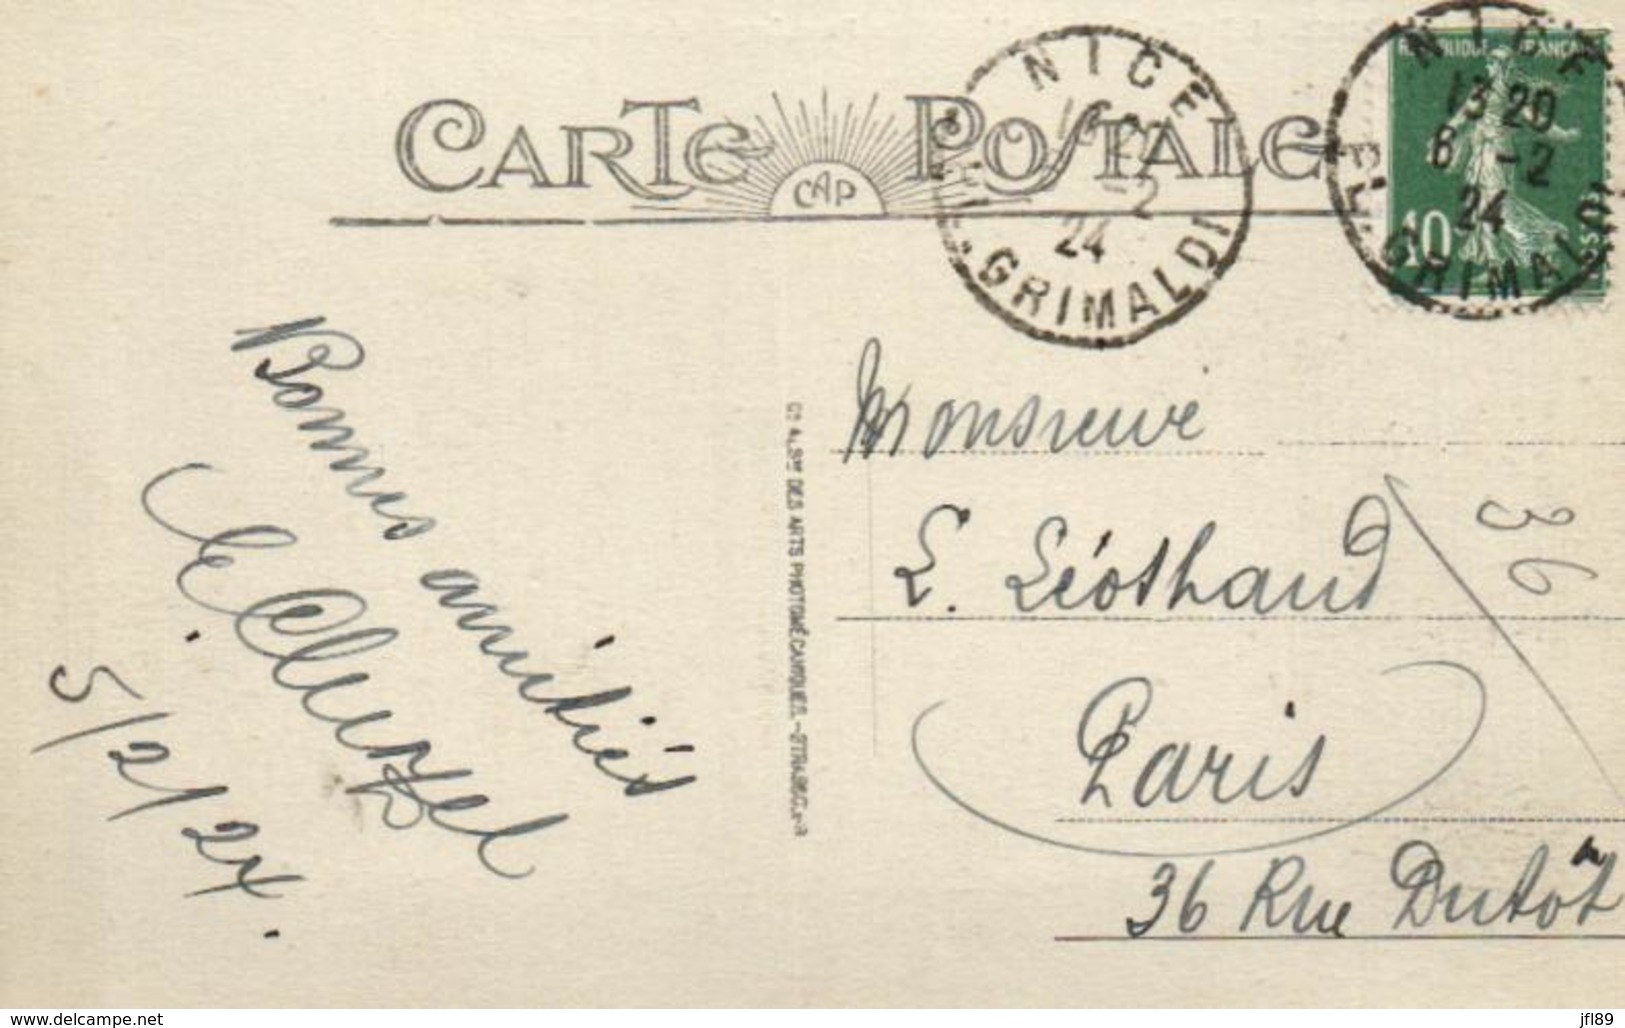 CARTE POSTALE
CAP
NICE
-2
24
PL. GRIMALDI
RÉPUBLIQUE FRANÇAISE
10
NICE
13 20
6 -2
24
PL. GRIMALDI
Bonnes amitiés
5/2/24.
Cie A. & Ste DES ARTS PHOTOMÉCANIQUES. - STRASBG.
Monsieur
L. Léothaud
36
Paris
36 Rue Dutôt
www.delcampe.net
jfl89